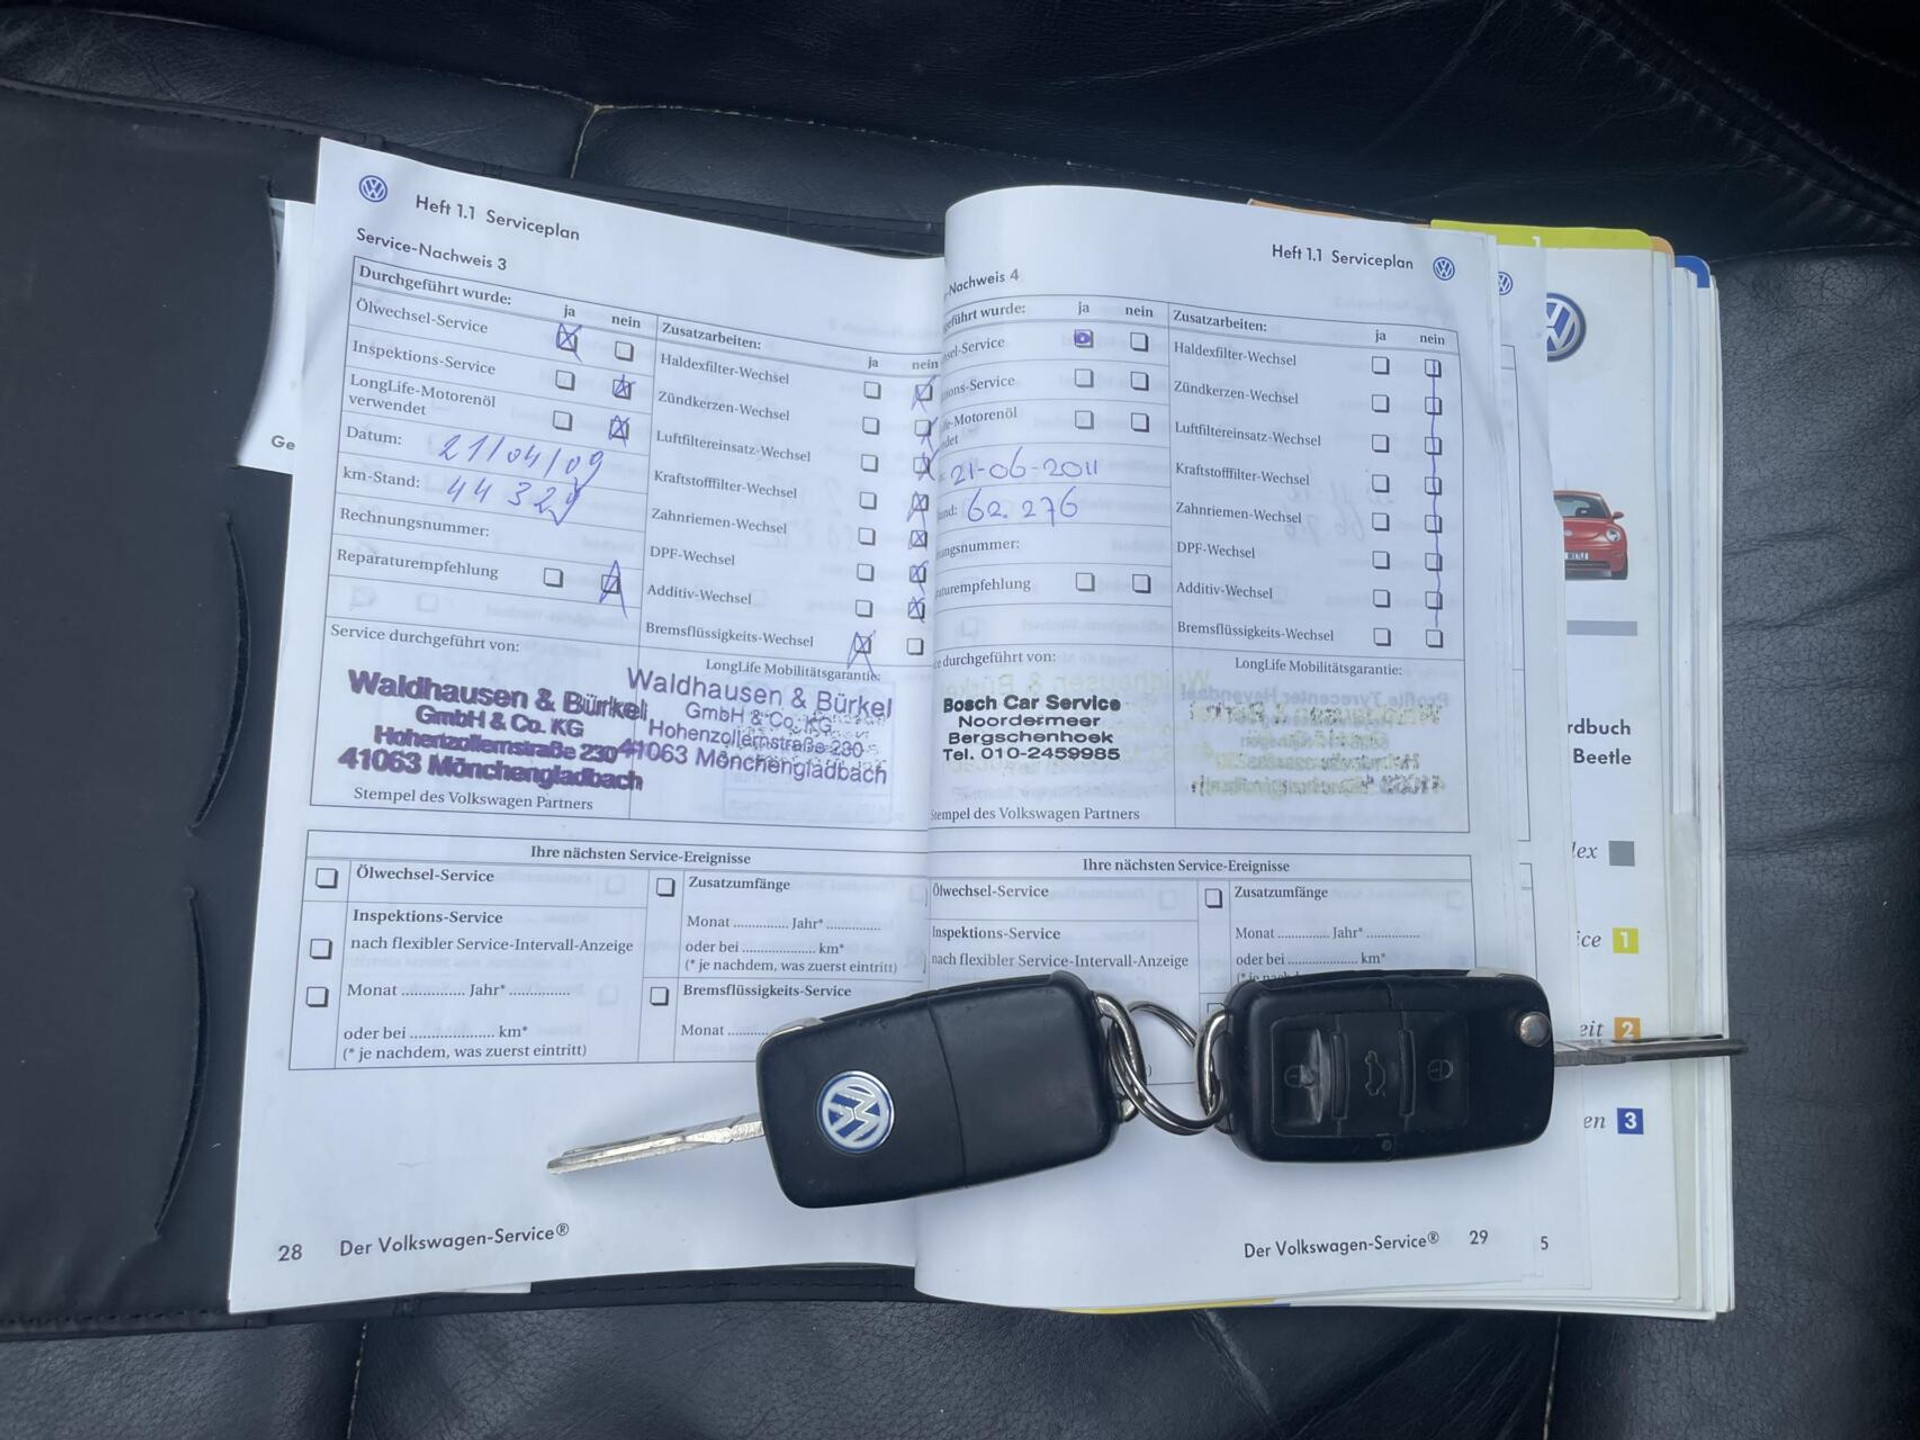 Heft 1.1 Serviceplan
Service-Nachweis 3
Durchgeführt wurde:
ja nein
Ölwechsel-Service
Inspektions-Service
LongLife-Motorenöl
verwendet
Datum: 21/04/09
km-Stand: 44 329
Rechnungsnummer:
Reparaturempfehlung
Zusatzarbeiten:
ja nein
Haldexfilter-Wechsel
Zündkerzen-Wechsel
Luftfiltereinsatz-Wechsel
Kraftstofffilter-Wechsel
Zahnriemen-Wechsel
DPF-Wechsel
Additiv-Wechsel
Bremsflüssigkeits-Wechsel
Service durchgeführt von:
Waldhausen & Bürkel
GmbH & Co. KG
Hohenzollernstraße 230
41063 Mönchengladbach
Stempel des Volkswagen Partners
LongLife Mobilitätsgarantie:
Waldhausen & Bürkel
GmbH & Co. KG
Hohenzollernstraße 230
41063 Mönchengladbach
Ihre nächsten Service-Ereignisse
Ölwechsel-Service
Inspektions-Service
nach flexibler Service-Intervall-Anzeige
Monat ............... Jahr* ...............
oder bei ..................... km*
(* je nachdem, was zuerst eintritt)
Zusatzumfänge
Monat .............. Jahr* ..............
oder bei ................... km*
(* je nachdem, was zuerst eintritt)
Bremsflüssigkeits-Service
Monat ..........
28 Der Volkswagen-Service®
Heft 1.1 Serviceplan
-Nachweis 4
führt wurde:
ja nein
sel-Service
ions-Service
fe-Motorenöl
det
21-06-2011
and: 62.276
ngsnummer:
aturempfehlung
Zusatzarbeiten:
ja nein
Haldexfilter-Wechsel
Zündkerzen-Wechsel
Luftfiltereinsatz-Wechsel
Kraftstofffilter-Wechsel
Zahnriemen-Wechsel
DPF-Wechsel
Additiv-Wechsel
Bremsflüssigkeits-Wechsel
e durchgeführt von:
Bosch Car Service
Noordermeer
Bergschenhoek
Tel. 010-2459985
Stempel des Volkswagen Partners
LongLife Mobilitätsgarantie:
Ihre nächsten Service-Ereignisse
Ölwechsel-Service
Inspektions-Service
nach flexibler Service-Intervall-Anzeige
Zusatzumfänge
Monat .............. Jahr* ..............
oder bei ................... km*
Der Volkswagen-Service® 29
5
Ge
1
rdbuch
Beetle
lex
ice 1
eit 2
en 3